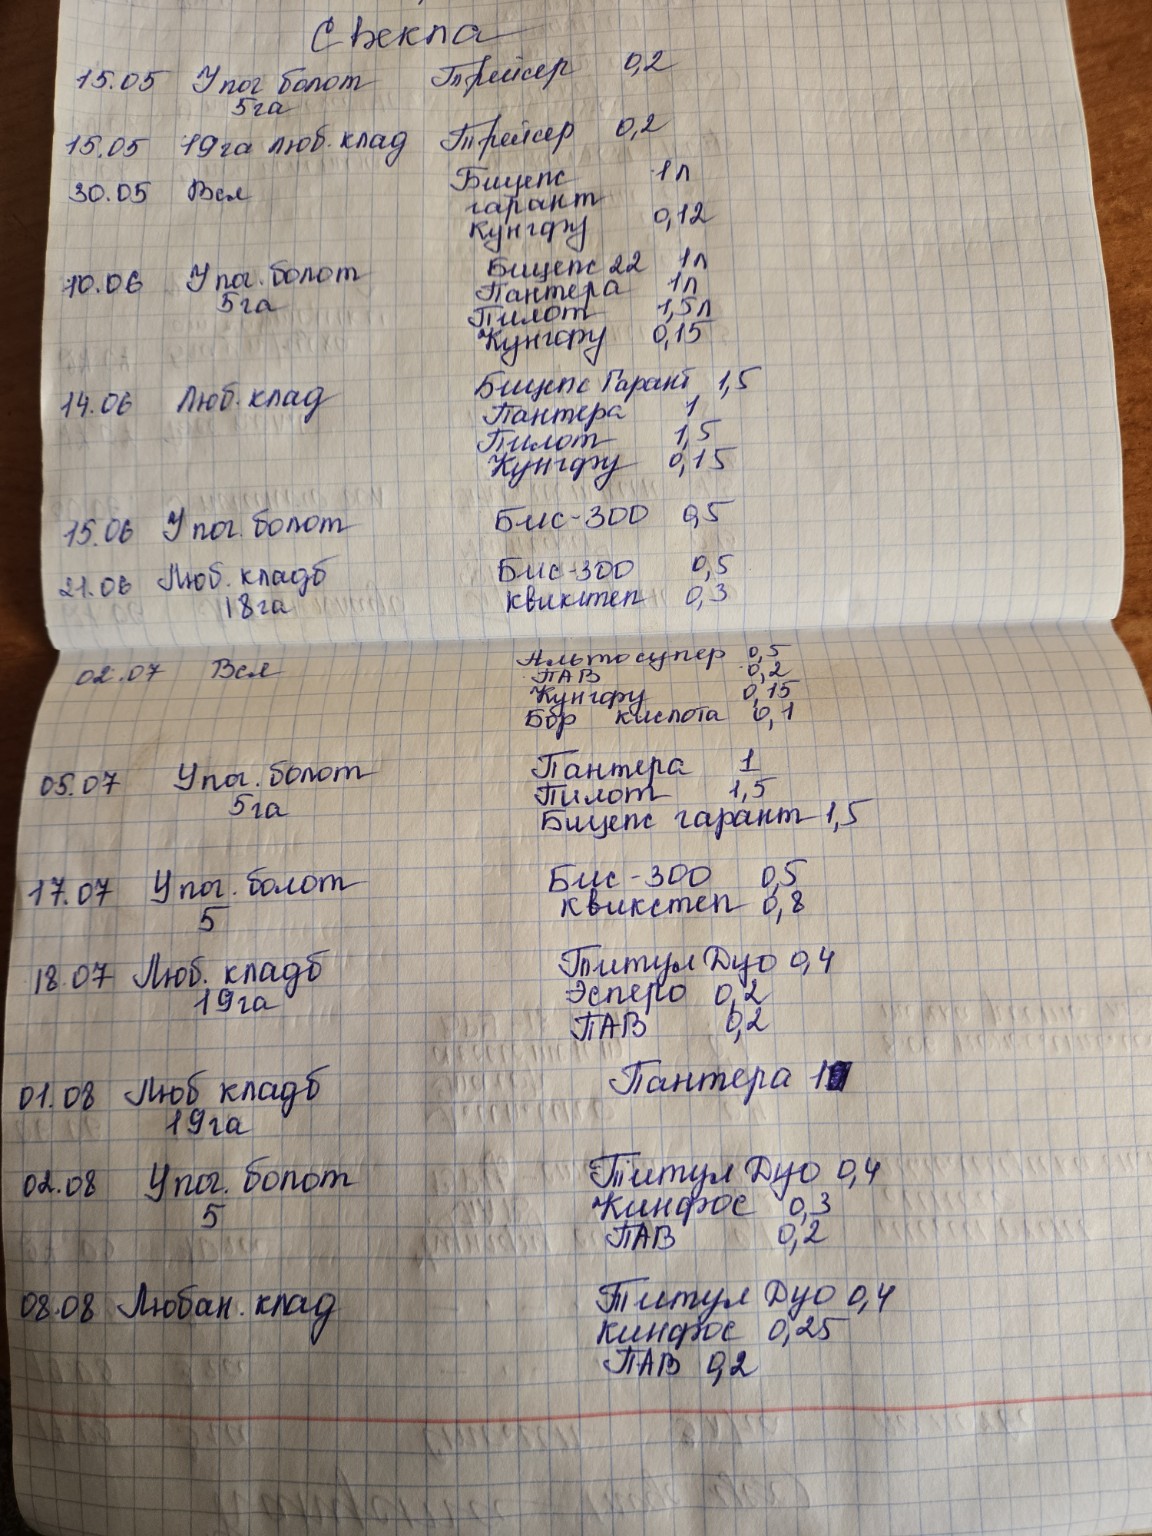 Свекла
15.05 У пог. болот Трейсер 0,2
5га
15.05 19га люб. клад Трейсер 0,2
30.05 Вся Бицепс 1л
гарант
Кунгфу 0,12
10.06 У пог. болот Бицепс 22 1л
5га Пантера 1л
Пилот 1,5л
Кунгфу 0,15
14.06 Люб. клад Бицепс Гарант 1,5
Пантера 1
Пилот 1,5
Кунгфу 0,15
15.06 У пог. болот Бис-300 0,5
21.06 Люб. кладб Бис-300 0,5
18га Квикстеп 0,3
02.07 Вся Альтосупер 0,5
ПАВ 0,2
Кунгфу 0,15
Бор кислота 0,1
05.07 У пог. болот Пантера 1
5га Пилот 1,5
Бицепс гарант 1,5
17.07 У пог. болот Бис-300 0,5
5 Квикстеп 0,8
18.07 Люб. кладб Титул Дуо 0,4
19га Эсперо 0,2
ПАВ 0,2
01.08 Люб кладб Пантера 1
19га
02.08 У пог. болот Титул Дуо 0,4
5 Кинфос 0,3
ПАВ 0,2
08.08 Любан. клад Титул Дуо 0,4
Кинфос 0,25
ПАВ 0,2